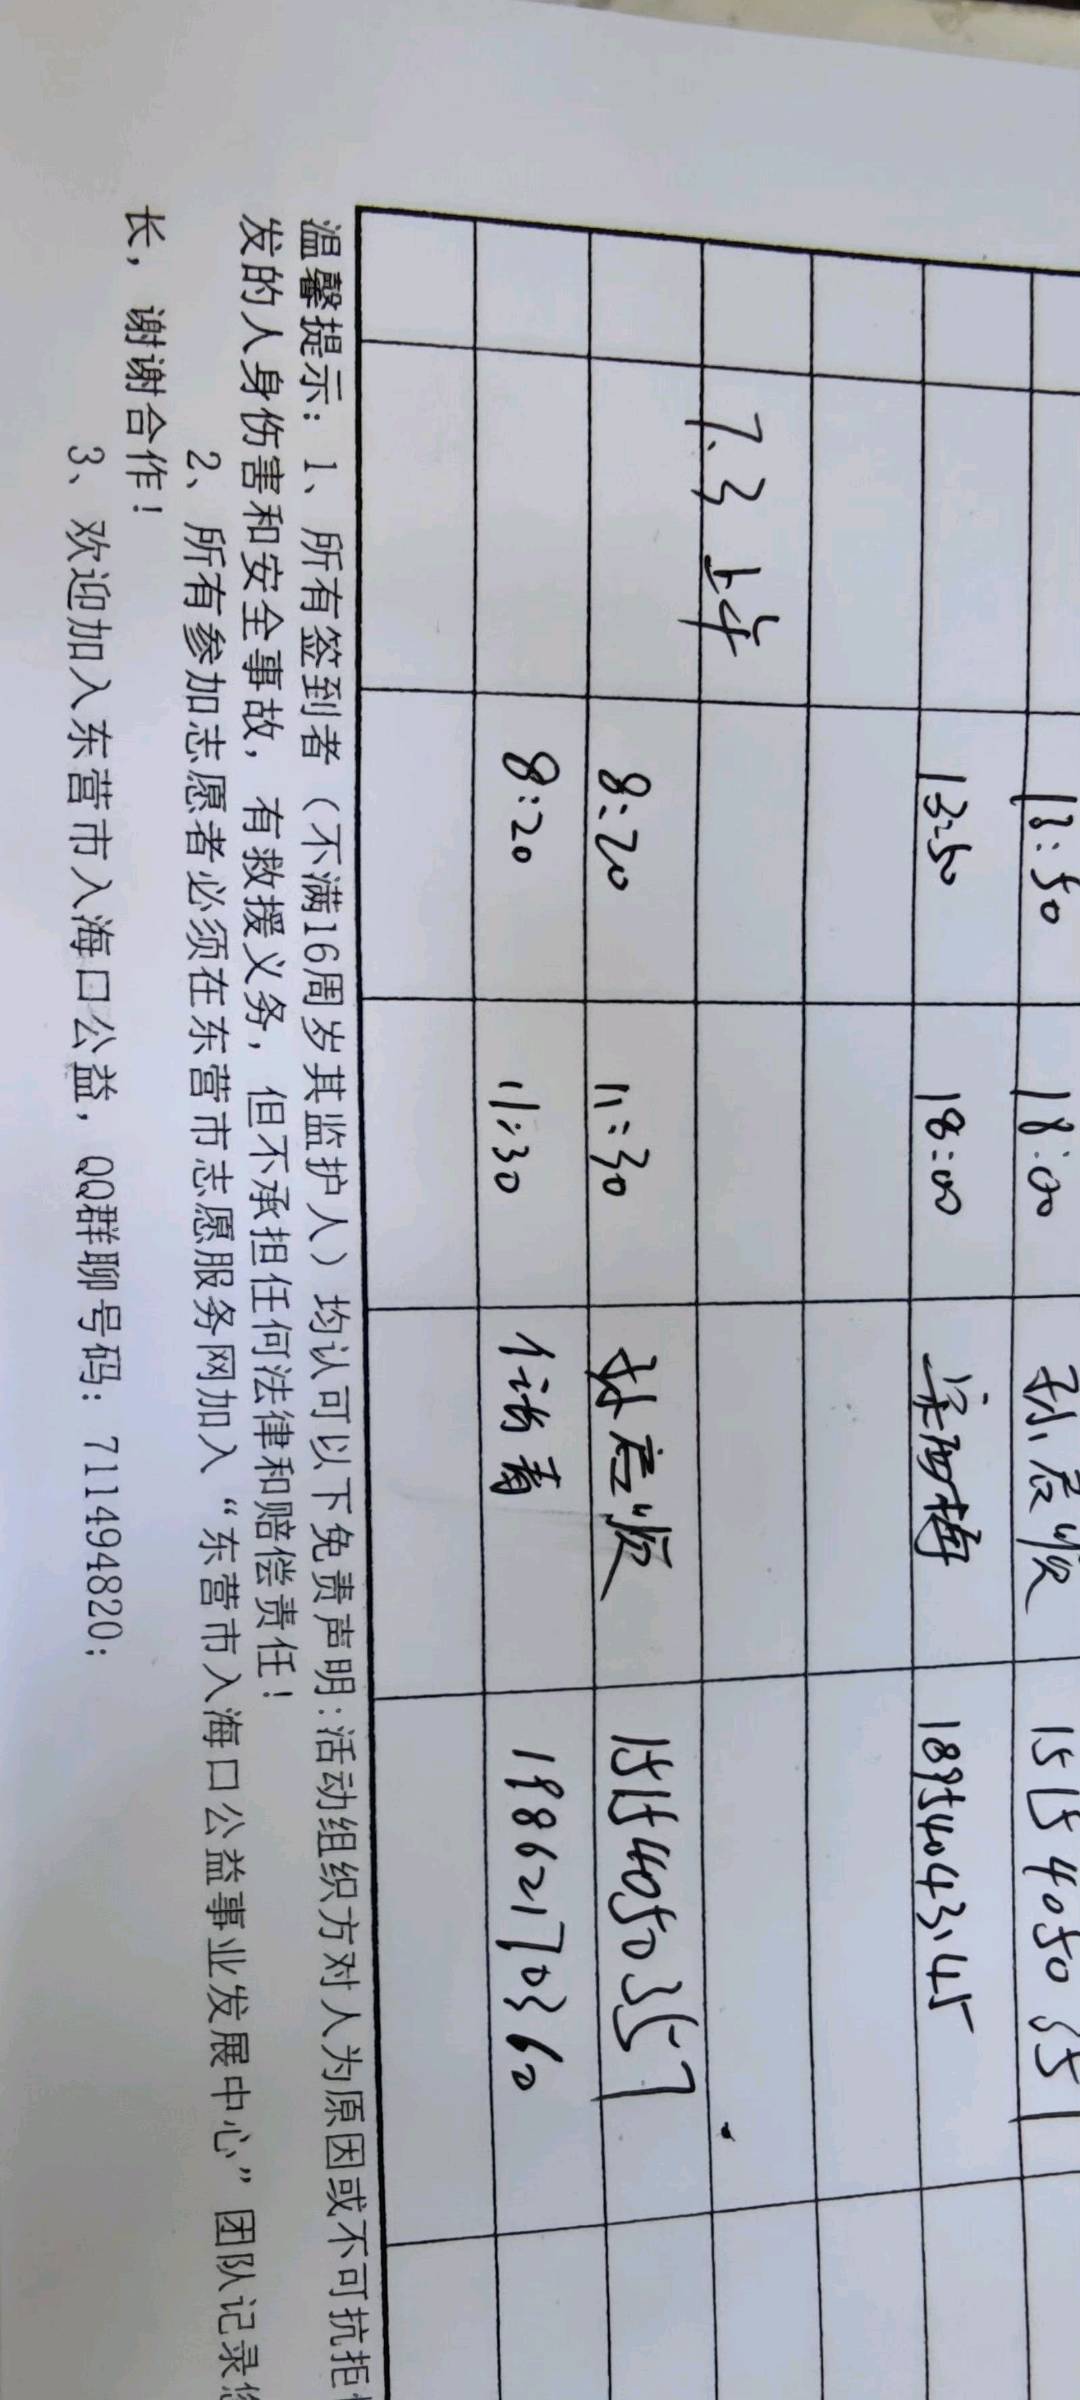 13:50 18:00 15154050357
13:50 18:00 18954043145
7.3 上午
8:20 11:30 15154050357
8:20 11:30 19862170360
温馨提示：1、所有签到者（不满16周岁其监护人）均认可以下免责声明:活动组织方对人为原因或不可抗拒
发的人身伤害和安全事故，有救援义务，但不承担任何法律和赔偿责任！
2、所有参加志愿者必须在东营市志愿服务网加入“东营市入海口公益事业发展中心”团队记录
长，谢谢合作！
3、欢迎加入东营市入海口公益，QQ群聊号码：711494820；